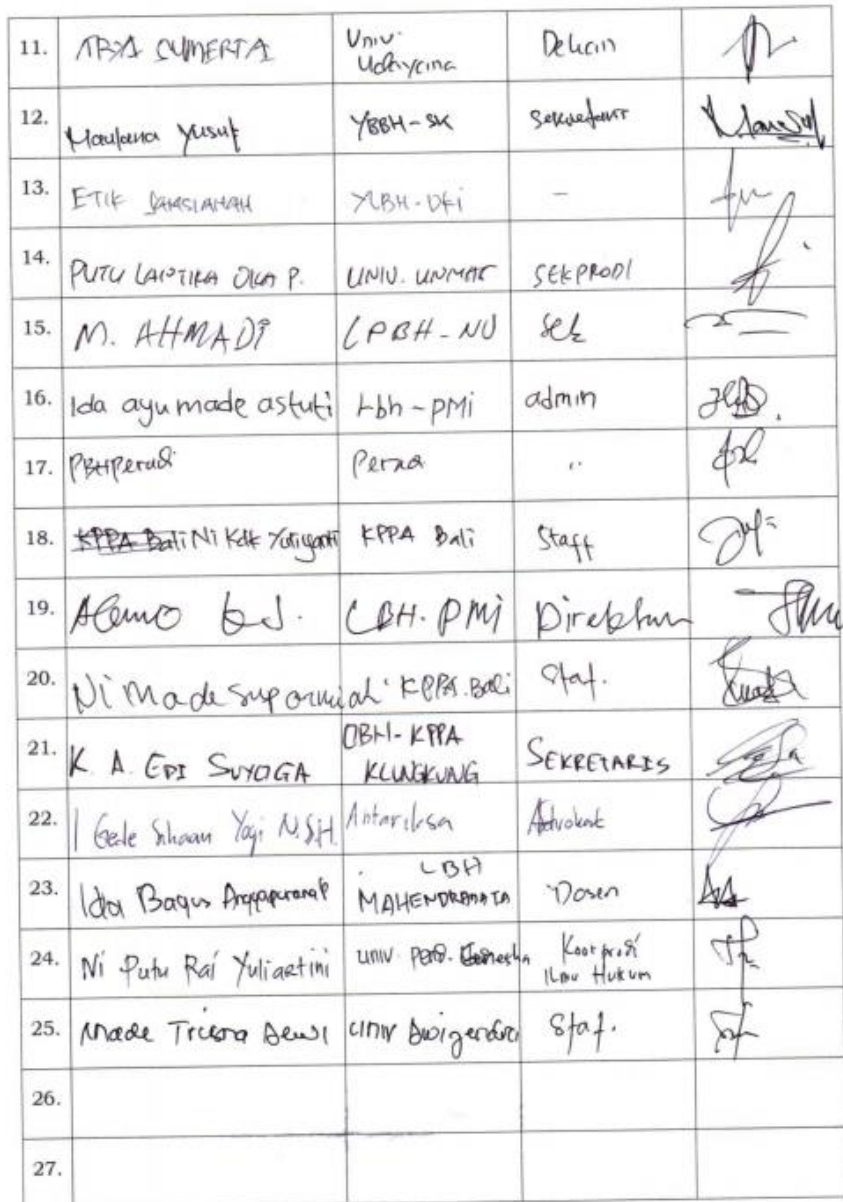 11. ARYA SUMERTA Univ. Udayana Dekan
12. Maulana Yusuf YBBH-SK Sekretaris
13. ETIK YLBH-DKI -
14. PUTU OKA P. UNIV. UNMAR SEKPRODI
15. M. AHMADI LPBH-NU Sek
16. Ida ayu made astuti Lbh-PMI admin
17. PBH Peradi Peradi "
18. KPPA Bali Ni Kdk Yuliyanti KPPA Bali Staff
19. LBH. PMI Direktur
20. Ni Made suparmiah KPPA. Bali Staf.
21. K. A. EDI SUYOGA OBH-KPPA KLUNGKUNG SEKRETARIS
22. I Gede Yogi N. S.H. Antariksa Advokat
23. Ida Bagus LBH MAHENDRADATA Dosen
24. Ni Putu Rai Yuliartini univ. Pend. Ganesha Koorprodi Ilmu Hukum
25. Made Trisna Dewi Univ Dwijendra Staf.
26.
27.